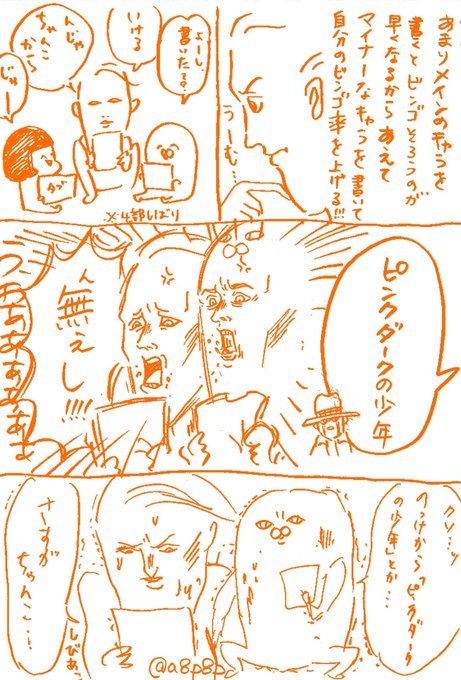 あまりメインのキャラを
書くとビンゴそろうのが
早くなるからあえて
マイナーなキャラを書いて
自分のビンゴ率を上げる!!!
うーむ…
よーし、
書いたな?
いける
んじゃ
ちゃんこ
から
じゃー
※4部しばり
ピンクダークの少年
無ぇし!!!!
クソ…ッ
のっけから「ピンクダーク
の少年」とか…
さすが
ちゃんこ…
しびあ…
@a8p8p